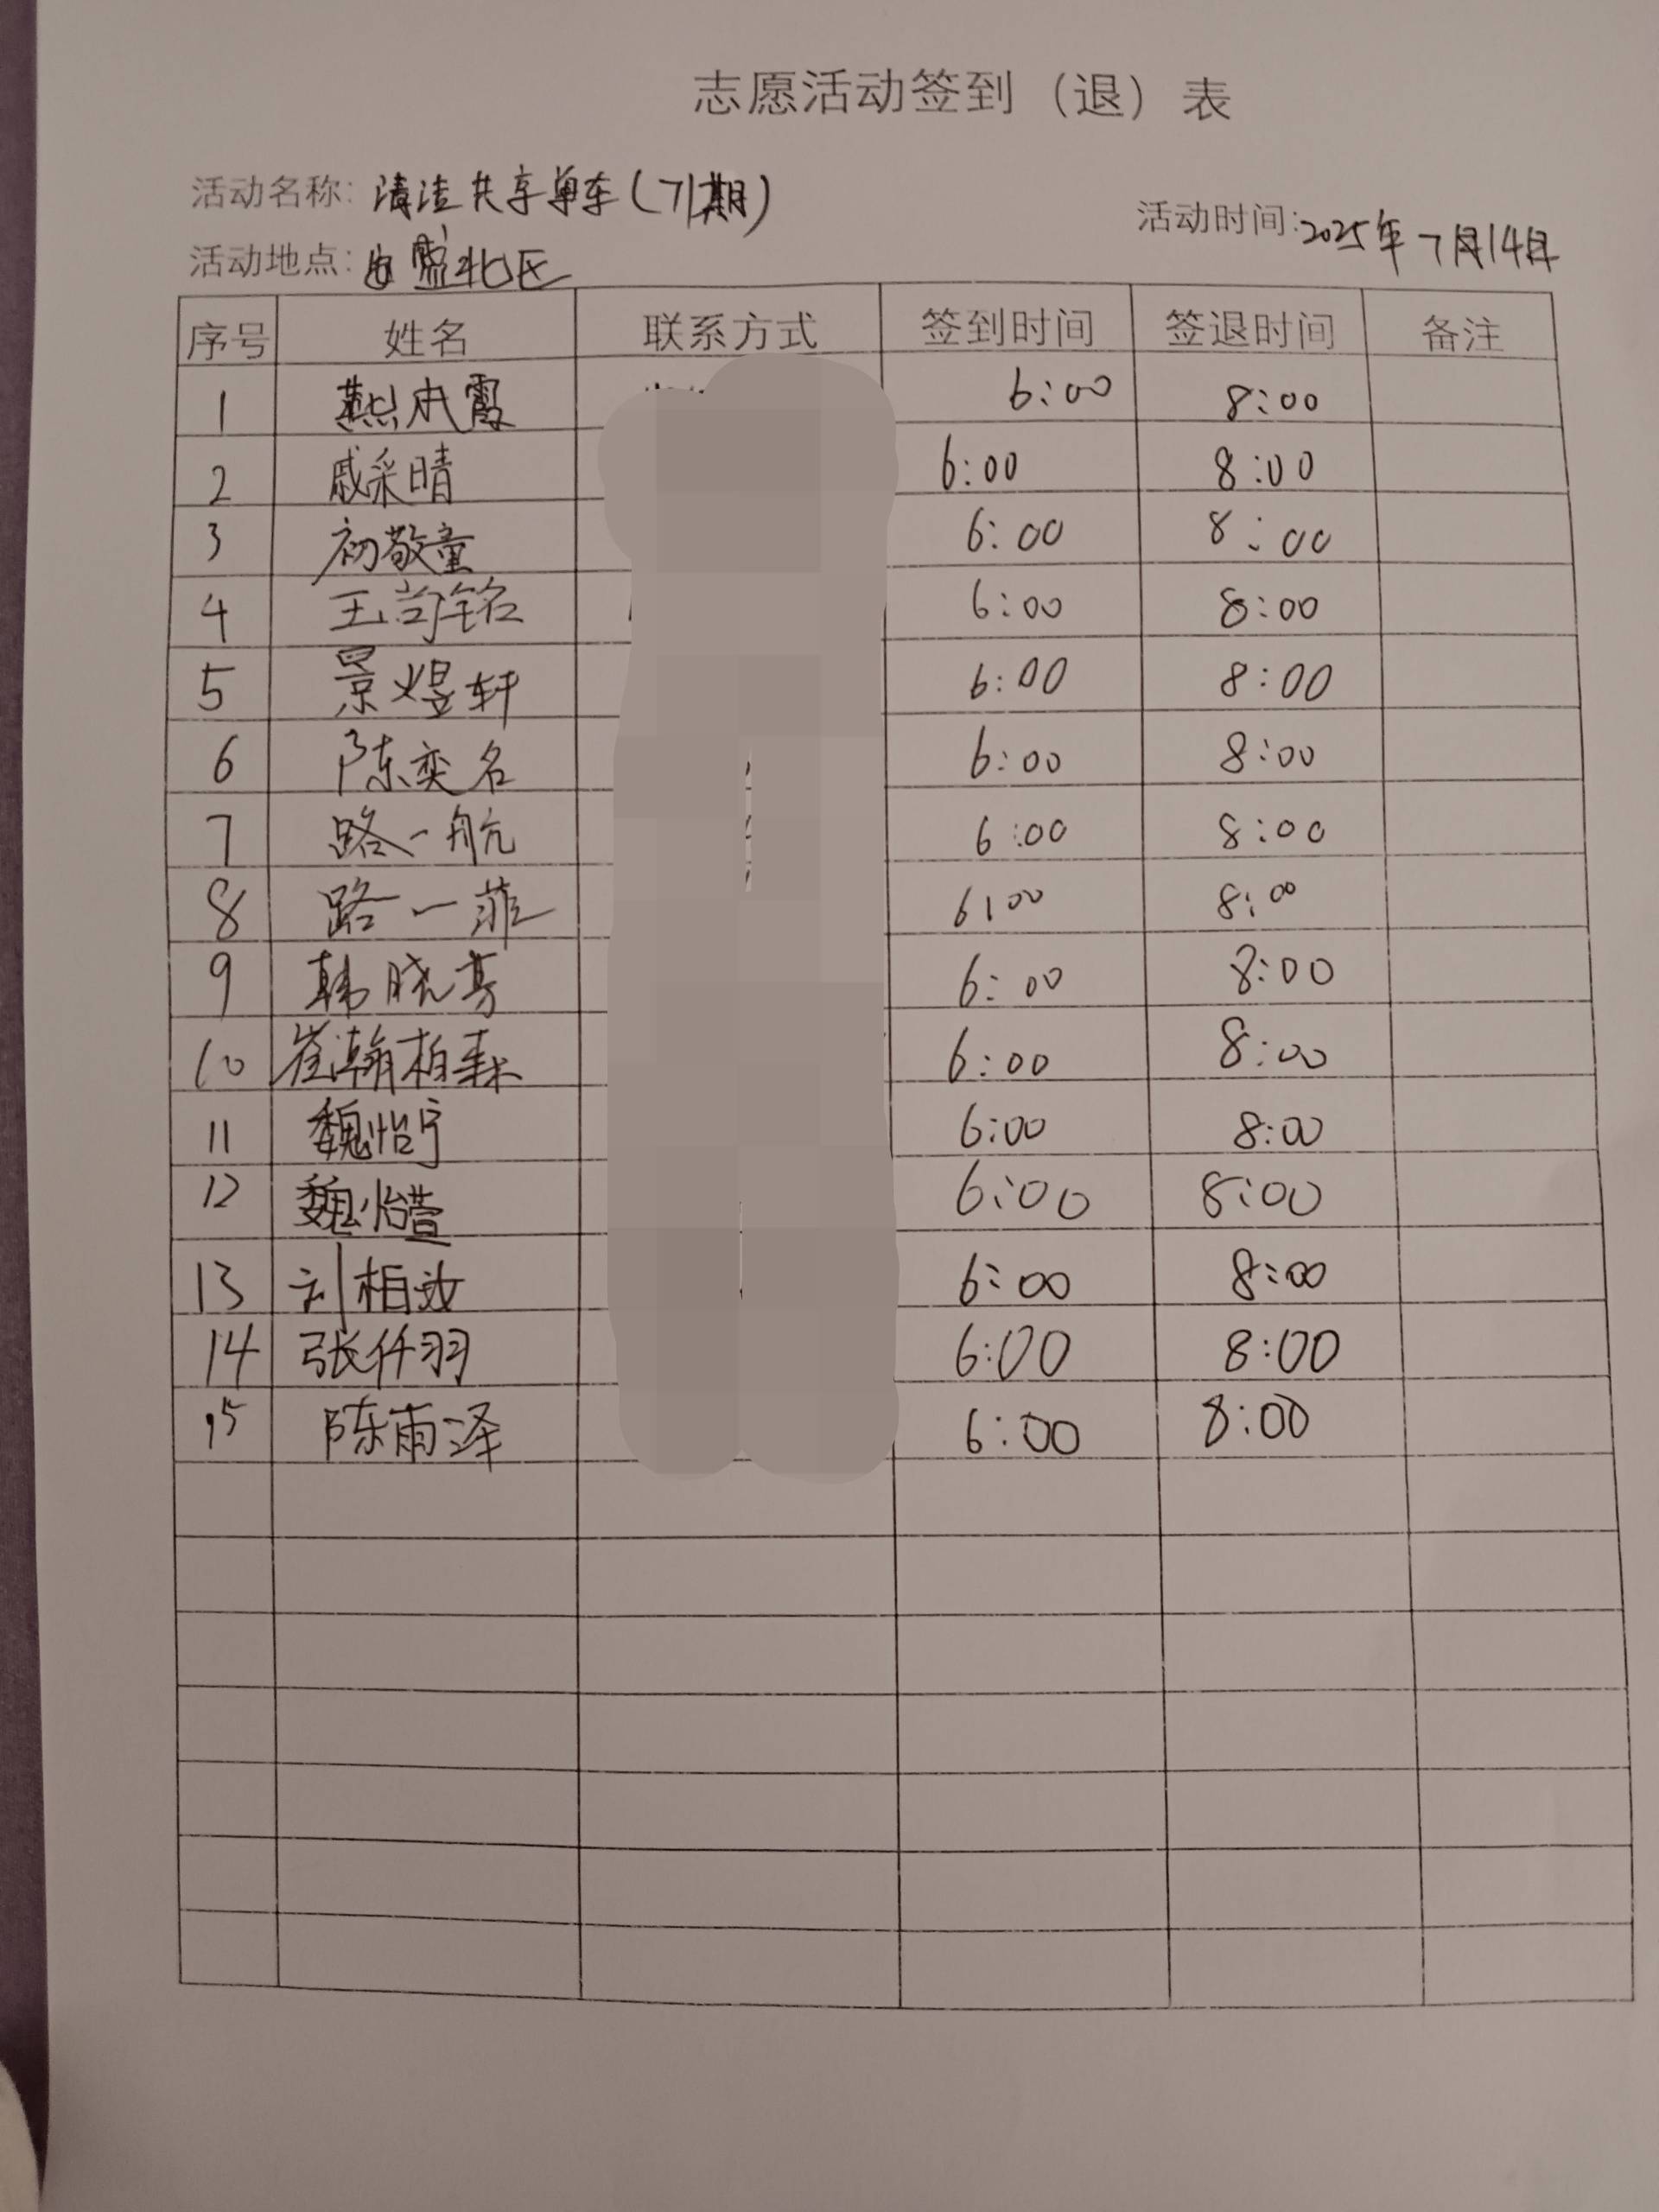 志愿活动签到（退）表
活动名称: 清洁共享单车(71期)
活动时间: 2025年7月14日
活动地点: 盛北区
序号 姓名 联系方式 签到时间 签退时间 备注
1 燕 霞 6:00 8:00
2 戚采晴 6:00 8:00
3 初敬童 6:00 8:00
4 王 铭 6:00 8:00
5 景煜轩 6:00 8:00
6 陈奕名 6:00 8:00
7 路一航 6:00 8:00
8 路一菲 6:00 8:00
9 韩晓 6:00 8:00
10 崔瀚柏森 6:00 8:00
11 魏怡宁 6:00 8:00
12 魏怡萱 6:00 8:00
13 刘柏 6:00 8:00
14 张仟羽 6:00 8:00
15 陈雨泽 6:00 8:00